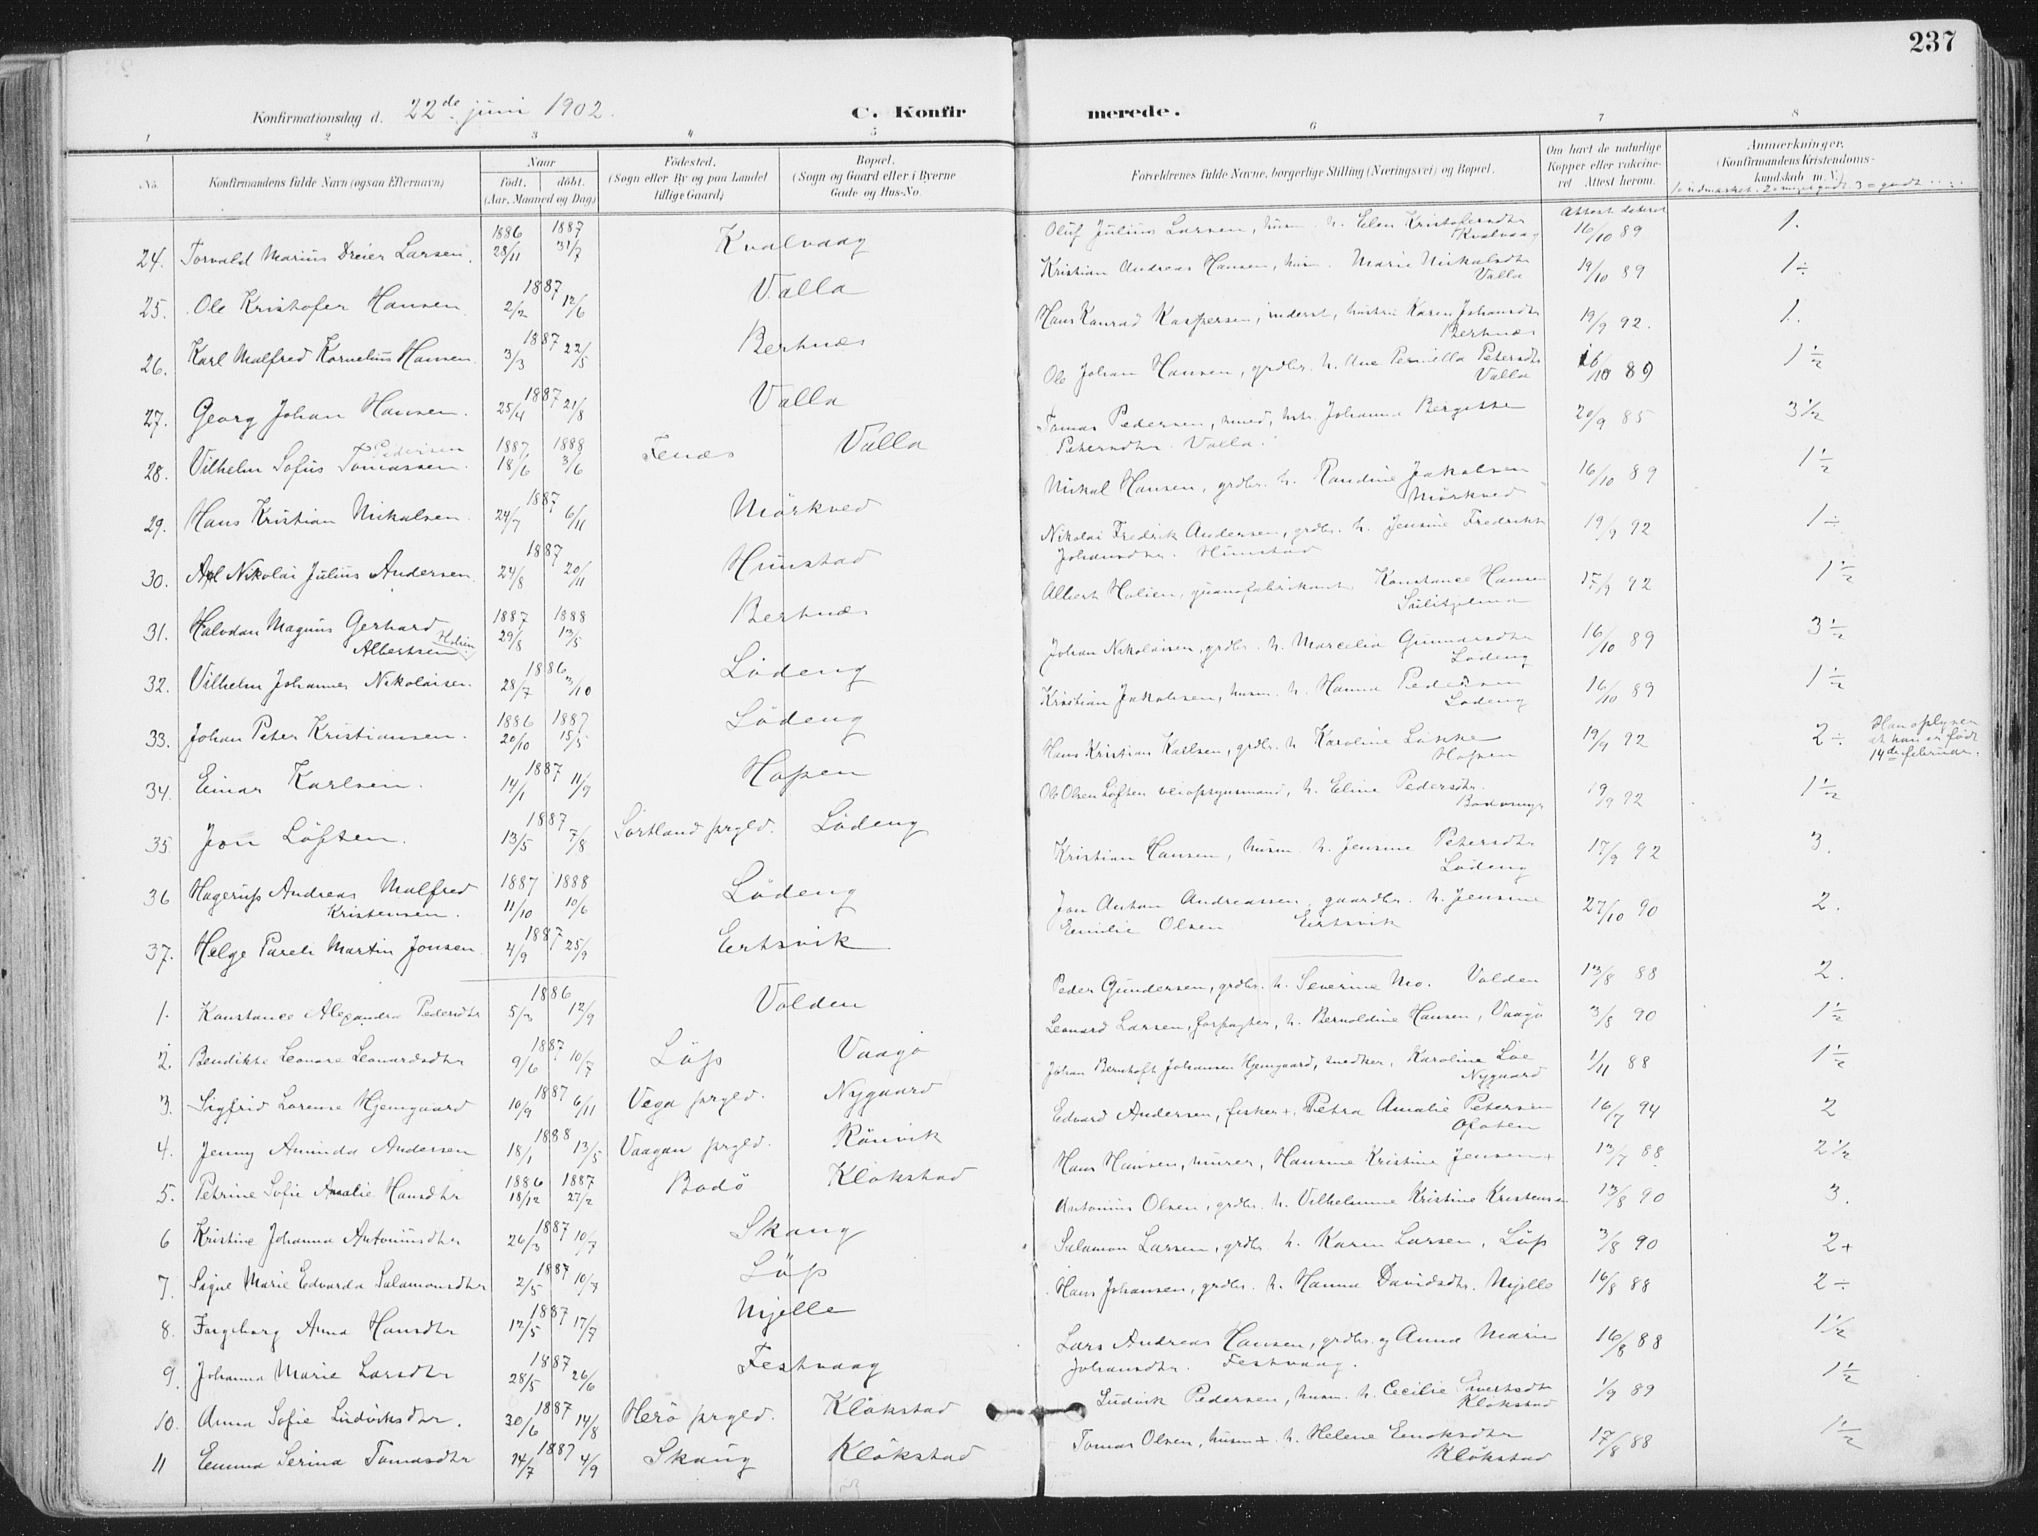 237
Konfirmationsdag d. 22de juni 1902.
C. Konfirmerede.
1 2 3 4 5 6 7 8
No. Konfirmandens fulde Navn (ogsaa Efternavn)
Naar født. døbt. (Aar, Maaned og Dag)
Födested. (Sogn eller By og paa Landet tillige Gaard)
Bopæl. (Sogn og Gaard eller i Byerne Gade og Hus-No.
Forældrenes fulde Navne, borgerlige Stilling (Næringsvei) og Bopæl.
Om havt de naturlige Kopper eller vakcineret Attest herom.
Anmærkninger. (Konfirmandens Kristendomskundskab m. V.)
1 = udmærket. 2 = meget godt 3 = godt
Attest dateret
24. Torvald Marius Dreier Larsen. 1886 28/11 1887 31/7 Kvalvaag Oluf Julius Larsen, husm. h. Elen Kristofersdtr Kvalvaag 16/10 89 1.
25. Ole Kristofer Hansen 1887 2/2 12/6 Valla Kristian Andreas Hansen, husm. Marie Nikolsdtr Valla 19/10 89 1÷
26. Karl Malfred Kornelius Hansen. 1887 3/3 22/5 Bertnes Hans Konrad Kaspersen, inderst, hustru Karen Johansdtr Bertnes 19/9 92. 1.
27. Georg Johan Hansen. 1887 25/4 21/8 Valla Ole Johan Hansen, grdbr. h. Ane Pernella Petersdtr Valla 16/10 89 1½
28. Vilhelm Sofus Tomassen. Pedersen 1887 18/6 1888 3/6 Fenes Valla Tomas Pedersen, smed, hstr. Johanna Bergitte Petersdtr. Valla. 20/9 85 3½
29. Hans Kristian Nikolsen. 1887 24/7 6/11 Mörkved Nikol Hansen, grdbr. h. Randine Jakobsen Mörkved 16/10 89 1½
30. Axel Nikolai Julius Andersen 1887 24/8 20/11 Hunstad Nikolai Fredrik Andersen, grdbr. h. Jensine Fredrikke Johansdtr. Hunstad 19/9 92 1÷
31. Halvdan Magnus Gerhard Albertsen Holien 1887 29/8 1888 13/5 Bertnes Albert Holien, guanofabrikant Konstance Hansen Sulitjelma 17/9 92 1½
32. Vilhelm Johannes Nikolaisen. 1886 28/7 3/10 Lödeng Johan Nikolaisen, grdbr. h. Marcelia Gunnarsdtr Lödeng 16/10 89 3½
33. Johan Peter Kristiansen. 1886 20/10 1887 15/5 Lödeng Kristian Jakobsen, husm. h. Hanna Pedersen Lödeng 16/10 89 1½
34. Einar Karlsen. 1887 14/1 11/7 Hopen Hans Kristian Karlsen, grdbr. h. Karoline Løkke Hopen 19/9 92 2÷ Han oplyser at han er født 14de februar.
35 Jon Löften. 1887 13/5 7/8 Sortland prgld. Lödeng Ole Olsen Löften veiopsynsmand, h. Eline Pedersdtr. 19/9 92 1½
36 Hagerup Andreas Malfred Kristensen. 1887 11/10 1888 10/6 Lödeng Kristian Hansen, husm. h. Jensine Petersdtr Lödeng 17/9 92 3.
37. Helge Pareli Martin Jonsen. 1887 4/9 25/9 Ertsvik Jon Anton Andreassen, gaardbr. h. Jensine Emilie Olsen Ertsvik 27/10 90 2.
1. Konstance Alexandra Pedersdtr 1886 5/3 12/9 Volden Peder Gundersen, grdbr. h. Severine Mo. Volden 13/8 88 2.
2. Bendikte Leonore Leonardsdtr 1887 9/6 10/7 Löp Vaagö Leonard Larsen, forpagter, h. Bernoldine Hansen, Vaagö 3/8 90 1½
3. Sigfrid Lorense Hjemgaard 1887 10/9 6/11 Vega prgld. Nygaard Johan Bernhoft Johansen Hjemgaard, snedker, Karoline Loe Nygaard 1/11 88 1½
4. Jenny Aminda Andersen 1888 18/1 13/5 Vaagan prgld. Rönvik Edvard Andersen, fisker +, Petra Amalie Petersen Ofoten 16/7 94 2
5. Petrine Sofie Amalie Hansdtr 1886 18/12 1887 27/2 Bodö Klökstad Hans Hansen, murer, Hansine Kristine Jensen + 13/7 88 2½
6 Kristine Johanna Antoniusdtr 1887 26/3 10/7 Skaug Antonius Olsen, grdbr. h. Vilhelmine Kristine Kristensen 13/8 90 3.
7. Signe Marie Edvarda Salamonsdtr 1887 2/5 10/7 Löp Salamon Larsen, grdbr. h. Karen Larsen, Löp 3/8 90 2+
8. Ingeborg Anna Hansdtr 1887 12/5 17/7 Mjelle Hans Johansen, grdbr. h. Hanna Davidsdtr. Mjelle 16/8 88 2÷
9. Johanna Marie Larsdtr 1887 28/5 26/6 Festvaag Lars Andreas Hansen, grdbr. og Anna Marie Johansdtr. Festvaag. 16/8 88 1½
10. Anna Sofie Ludviksdtr. 1887 30/6 14/8 Herö prgld. Klökstad Ludvik Pedersen, husm. h. Cecilie Sivertsdtr Klökstad 1/9 89 1½
11 Emma Serina Tomasdtr 1887 24/7 4/9 Skaug Klökstad Tomas Olsen, husm + h. Helene Enoksdtr Klökstad 17/8 88 1½